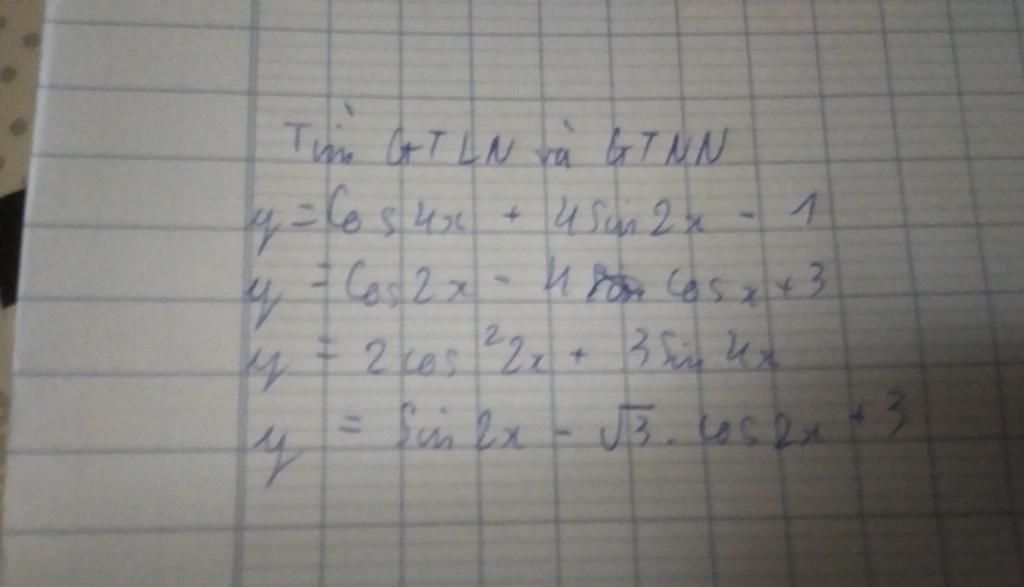 Tìm GTLN và GTNN
y = Cos 4x + 4 Sin 2x - 1
y = Cos 2x - 4 cos x + 3
y = 2 cos²2x + 3 Sin 4x
y = Sin 2x - √3 . cos 2x + 3